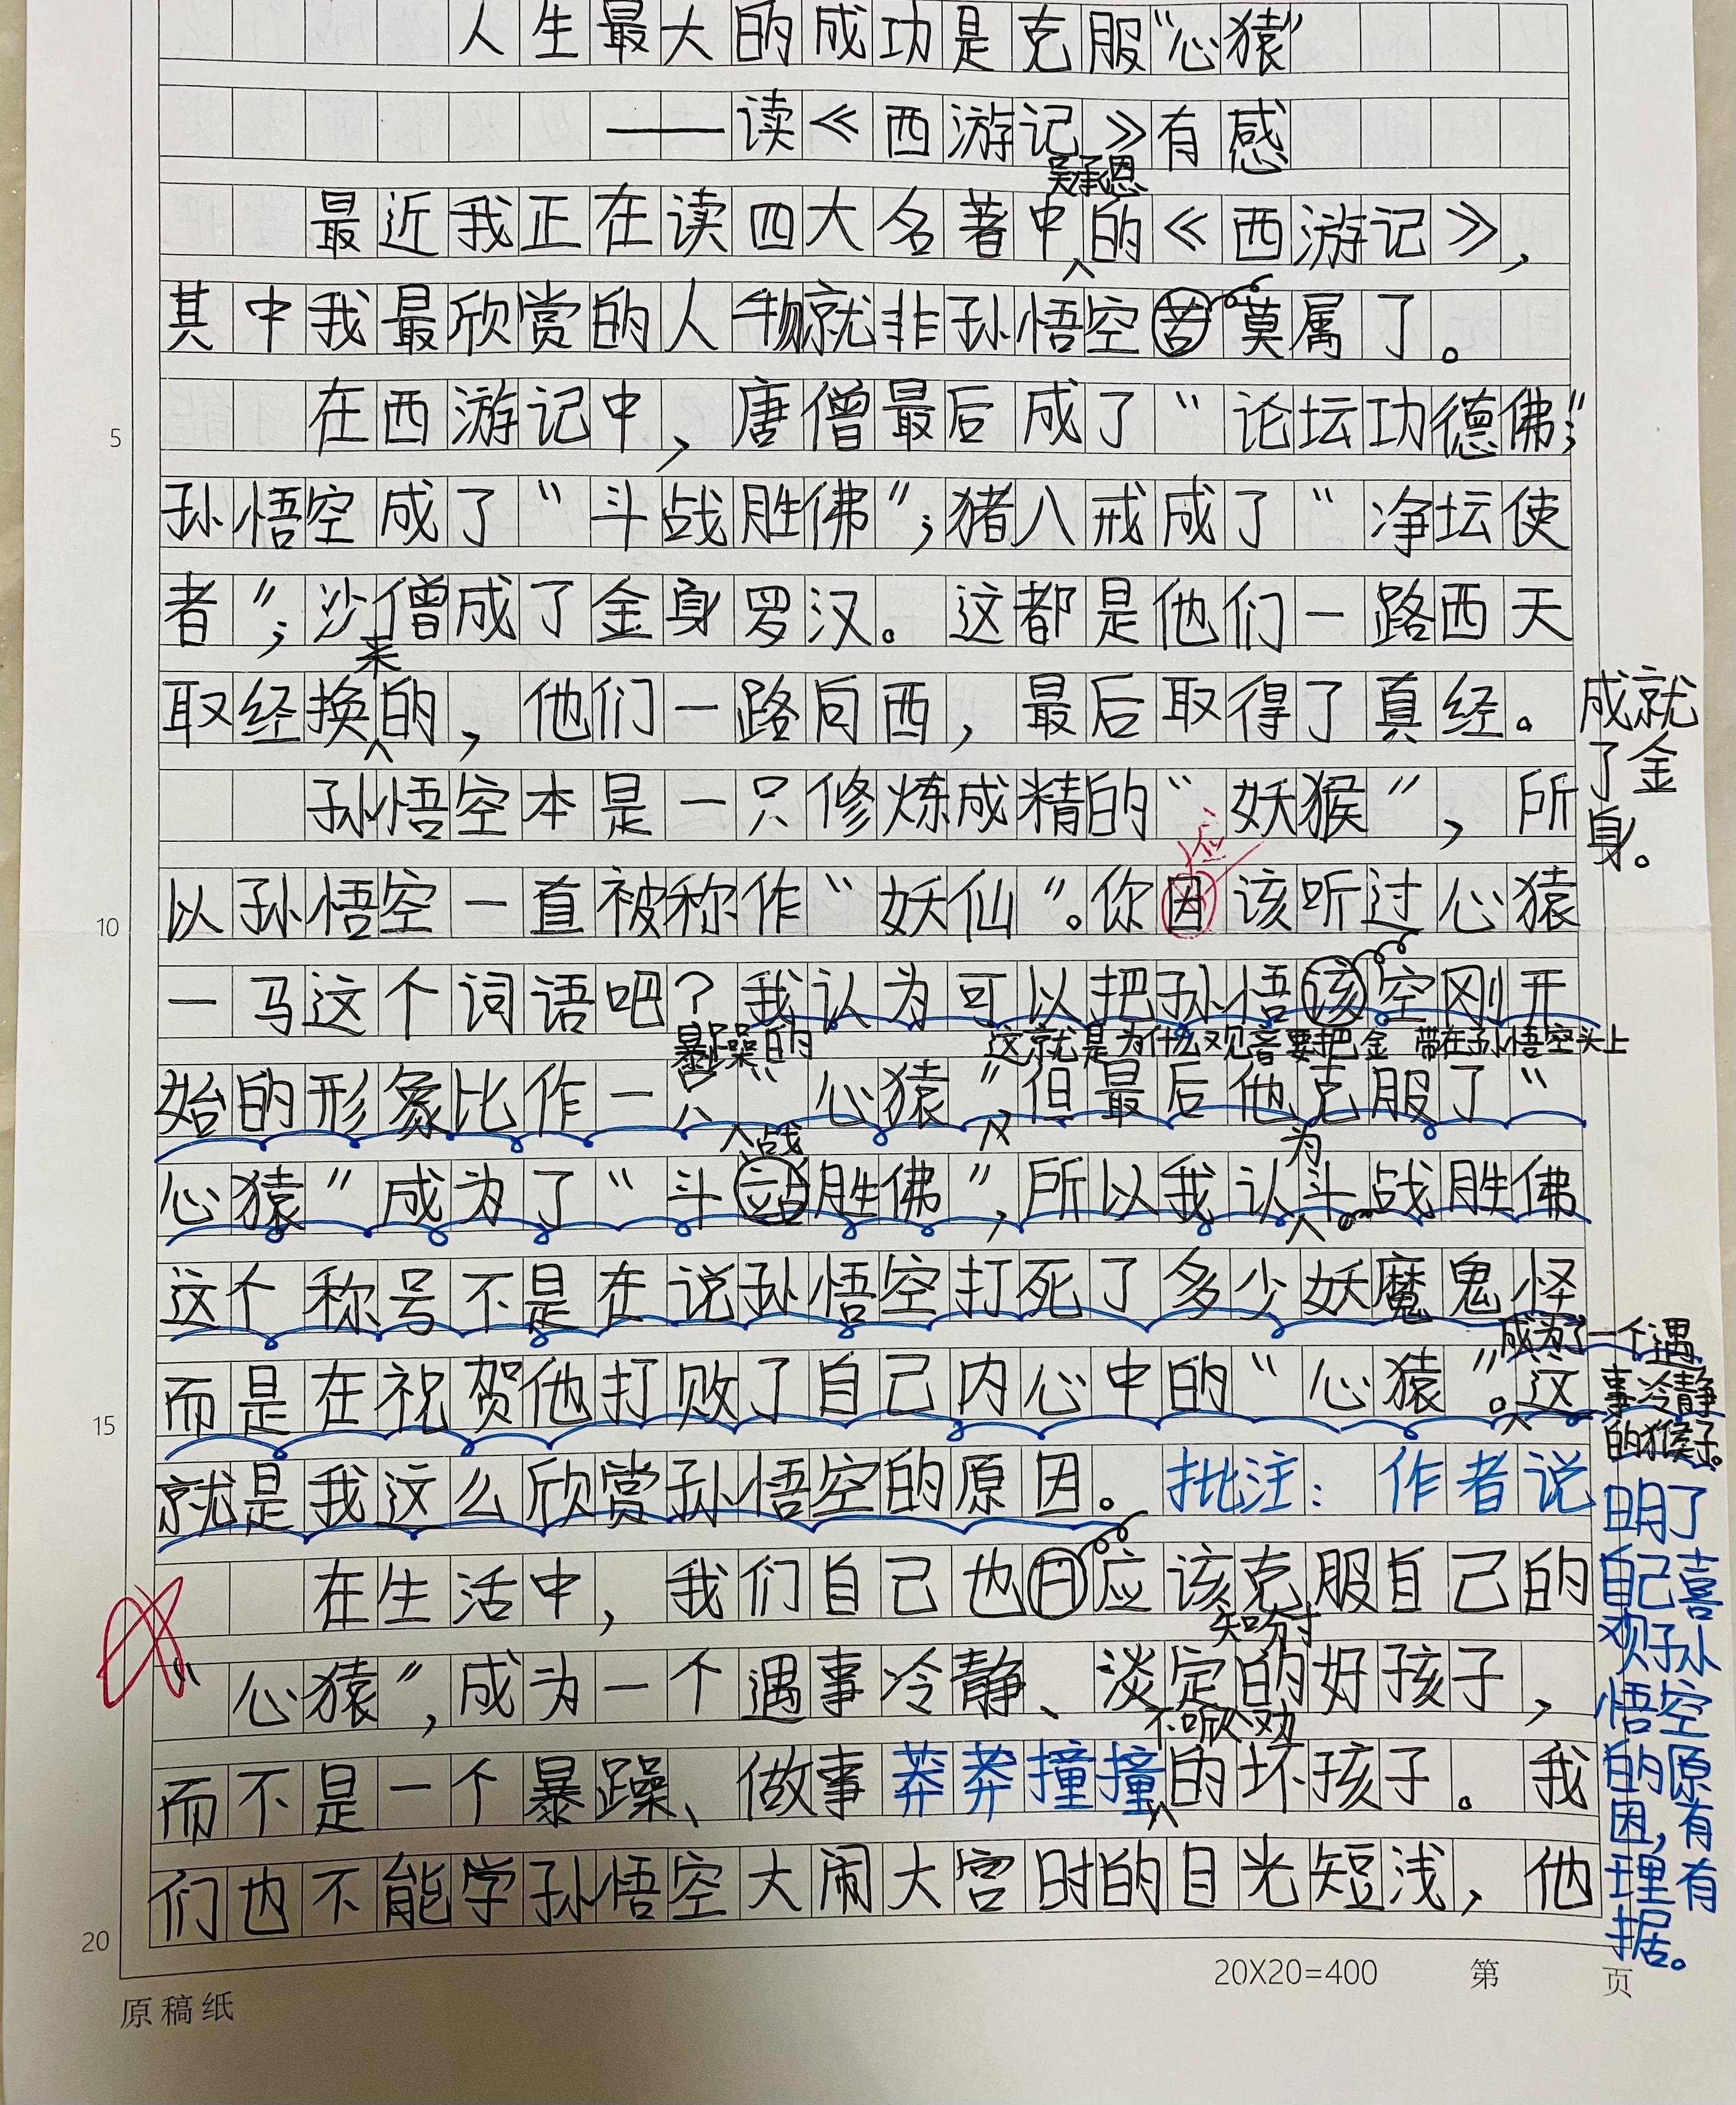 人生最大的成功是克服“心猿”
——读《西游记》有感
吴承恩
最近我正在读四大名著中的《西游记》，
其中我最欣赏的人物就非孙悟空苦莫属了。
在西游记中，唐僧最后成了“论坛功德佛”；
5
孙悟空成了“斗战胜佛”；猪八戒成了“净坛使
者”；沙僧成了金身罗汉。这都是他们一路西天
来
取经换的，他们一路向西，最后取得了真经。
成就
了金
身。
孙悟空本是一只修炼成精的“妖猴”，所
应
以孙悟空一直被称作“妖仙”。你因该听过心猿
10
一马这个词语吧？我认为可以把孙悟该空刚开
暴躁的
这就是为什么观音要把金 带在孙悟空头上
始的形象比作一只“心猿”，但最后他克服了“
战
为
心猿”成为了“斗站胜佛”，所以我认斗战胜佛
这个称号不是在说孙悟空打死了多少妖魔鬼怪
成为了一个遇
事冷静
的猴子。
而是在祝贺他打败了自己内心中的“心猿”。这
15
就是我这么欣赏孙悟空的原因。批注：作者说
明了
自己喜
欢孙
悟空
的原
因，有
理有
据。
在生活中，我们自己也因应该克服自己的
知分寸
“心猿”，成为一个遇事冷静、淡定的好孩子，
不听人劝
而不是一个暴躁、做事莽莽撞撞的坏孩子。我
们也不能学孙悟空大闹大宫时的目光短浅，他
20
20X20=400 第 页
原稿纸